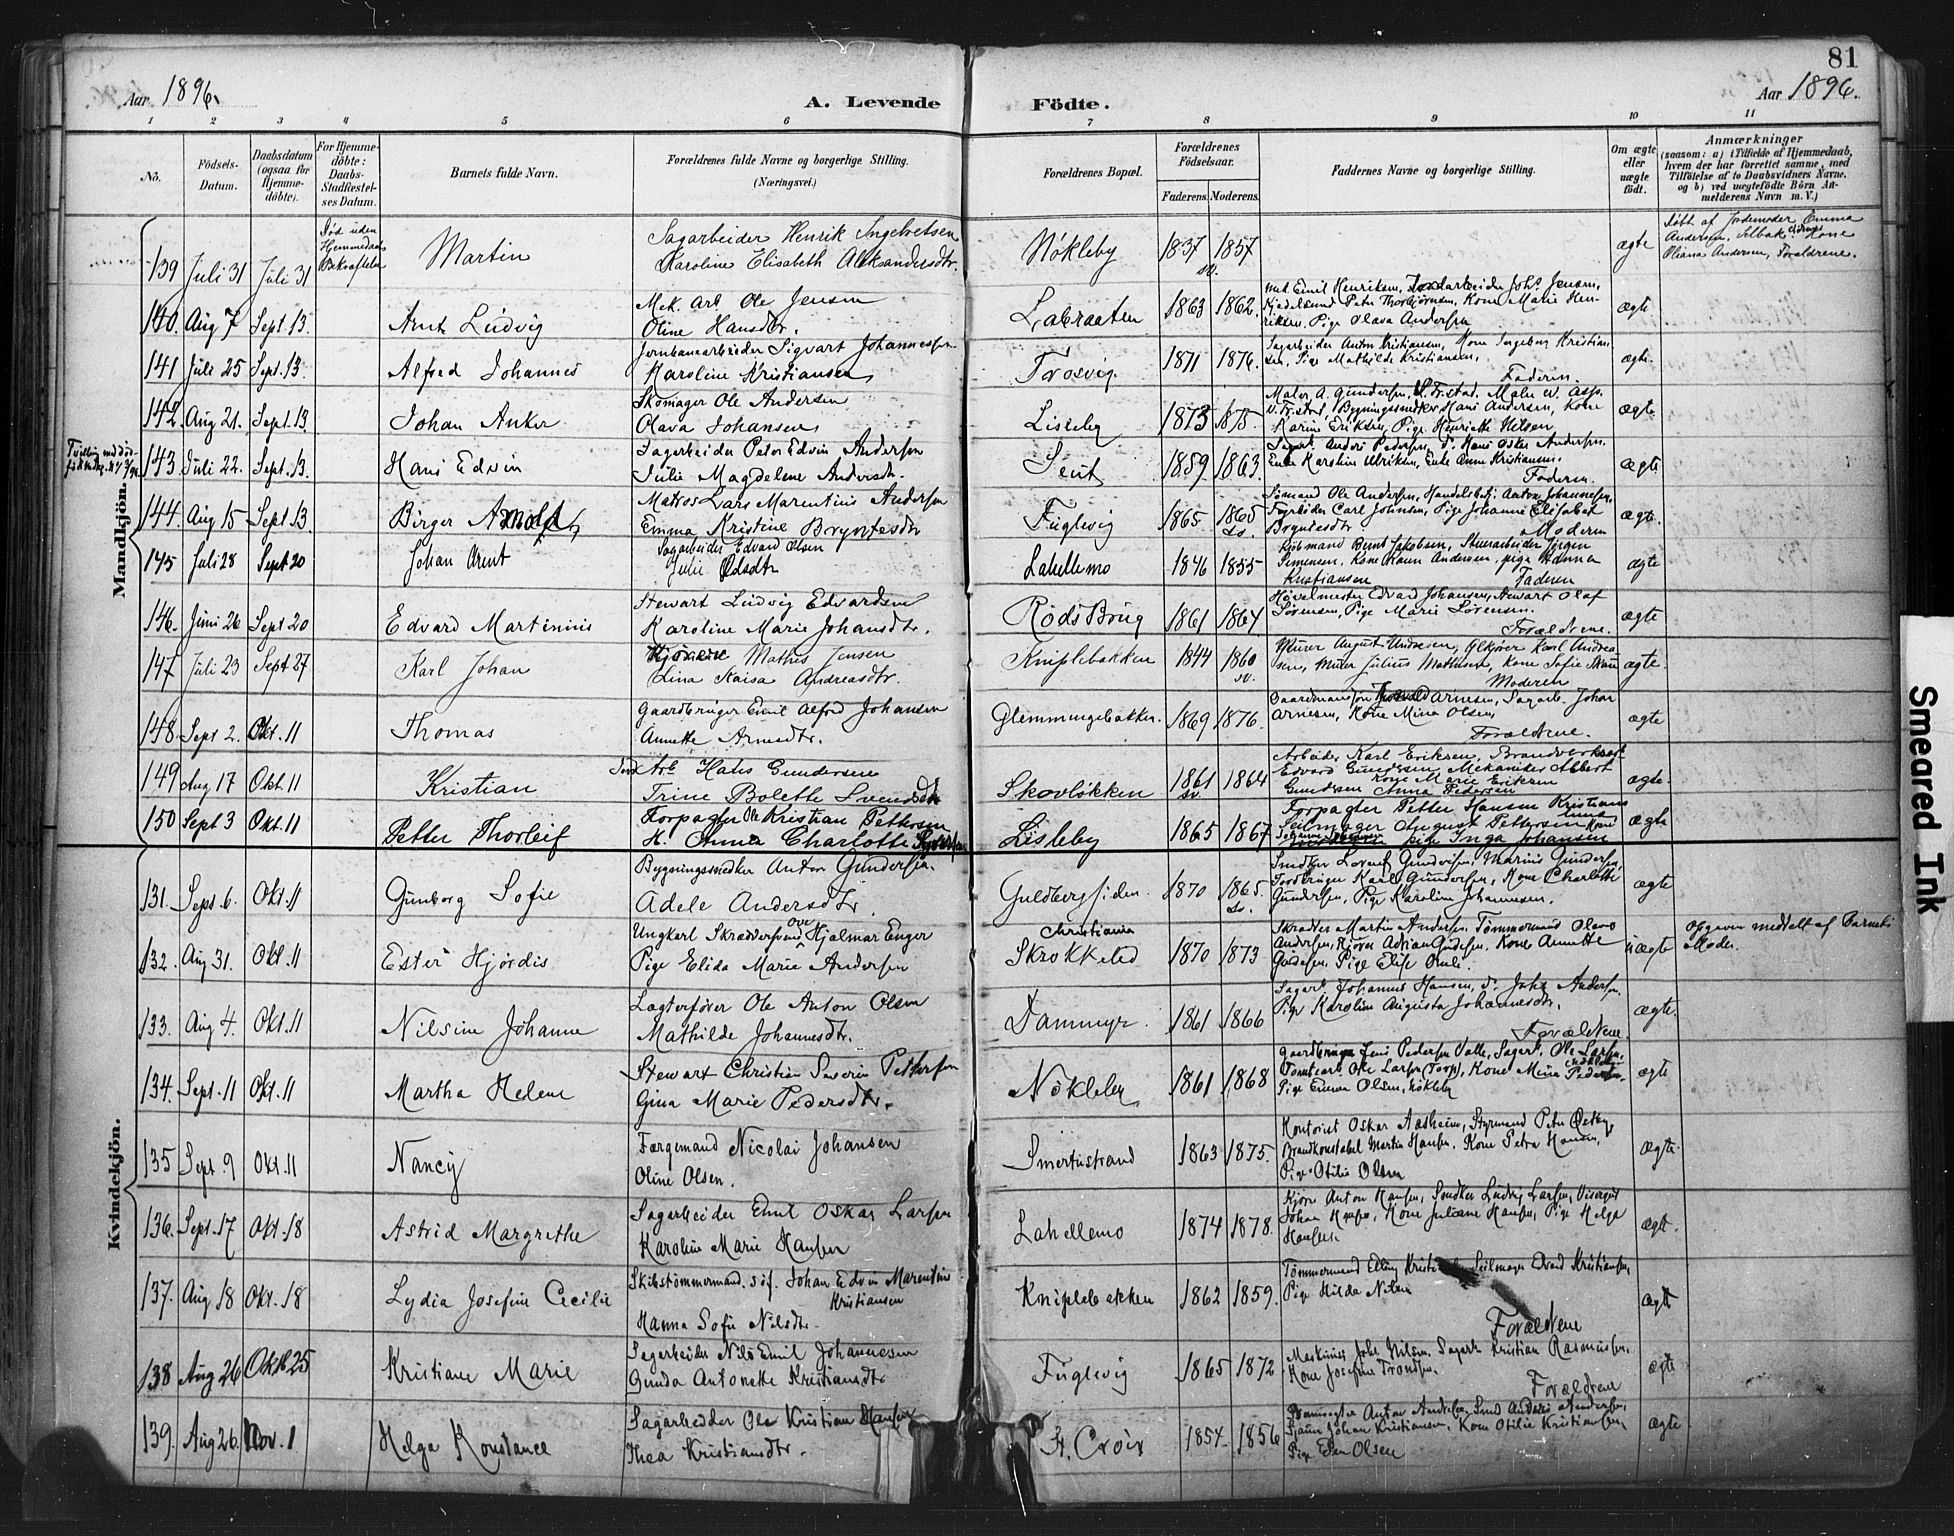 81
Aar 1896.
A. Levende Födte.
Aar 1896.
1 2 3 4 5 6 7 8 9 10 11
No.
Födsels-Datum.
Daabsdatum (ogsaa for Hjemme-döbte).
For Hjemme-döbte: Daabs-Stadfæstel-ses Datum.
Barnets fulde Navn.
Forældrenes fulde Navne og borgerlige Stilling. (Næringsvei.)
Forældrenes Bopæl.
Forældrenes Födselsaar.
Faderens Moderens
Faddernes Navne og borgerlige Stilling.
Om ægte eller uægte födt.
Anmærkninger
(saasom: a) i Tilfælde af Hjemmedaab, hvem der har forrettet samme, med Tilföielse af to Daabsvidners Navne, og b) ved uægtefödte Börn An-melderens Navn m. V.)
Mandkjön.
139 Juli 31 Juli 31 Död uden Hjemmedaabs Bekræftelse Martin
Sagarbeider Henrik Ingelretsen
Karoline Elisabeth Aleksandersdtr.
Nökleby 1837 1857 ægte
Döbt af Jordemoder Emma
Andersen, Selbak, Kone
Oliana Andersen, Forældrene.
140. Aug 7 Sept. 13. Arnt Ludvig
Mek. Arb. Ole Jensen
Oline Hansdtr.
Labraaten 1863 1862. ægte
riksen, Pige Olava Andersen
141 Juli 25 Sept. 13. Alfred Johannes
Jernbanearbeider Sigvart Johannessen
Karoline Kristiansen
Trosvig 1871 1876. ægte.
Sagarbeider Anton Kristiansen, Kone Ingeborg Kristian
sen, Pige Mathilde Kristiansen,
Faderen.
142. Aug 21. Sept. 13. Johan Anker
Skomager Ole Andersen
Olava Johansen
Lisleby 1873 1875. ægte.
Karine Eriksen, Pige Henriette Nilsen
Tvilling med död-
143. Juli 22. Sept. 13. Hans Edvin
Sagarbeider Peter Edvin Andersen
Julie Magdelene Andersdtr.
Leut 1859 1863. ægte
Faderen
144. Aug 15 Sept 13. Birger Arnold
Matros Lars Marentius Andersen
Emma Kristine Bryntesdtr
Fuglevig 1865 1865 ægte.
Sömand Ole Andersen, Handelsbetj. Anton Johannesen,
Fyrböder Carl Johnsen, Pige Johanne Elisabet
Bryntesdtr Moderen
145 Juli 28 Sept 20 Johan Arent
Sagarbeider Edvard Olsen
Julie Olsdtr
Lahellemo 1846 1855 ægte
Kjöbmand Bernt Jakobsen, Stuerarbeider Jörgen
Simensen, Kone Karen Andersen, pige Hanna
Kristiansen Faderen
146. Juni 26 Sept 20 Edvard Martinius
Stewart Ludvig Edvardsen
Karoline Marie Johansdtr.
Röds Brug 1861 1864 ægte
Hövelmester Edvard Johansen, Stewart Olaf
Sörensen, Pige Marie Sörensen.
Forældrene.
147 Juli 23 Sept 27 Karl Johan
Mathis Jensen
Lina Kaisa Andreasdtr.
Kniplebakken 1844 1860 ægte.
Murer August Andresen, Ölkjører Karl Andrea-
sen, Murer Julius Mathisen, Kone Sofie
Moderen
148. Sept 2. Okt. 11 Thomas
Gaardbruger Emil Alfred Johansen
Annette Arnesdtr.
Glemmingebakken. 1869 1876. ægte
Arnesen, Kone Mina Olsen,
Forældrene.
149 Aug 17 Okt. 11 Kristian
Arb. Hans Gundersen
Trine Bolette Svendsdtr
Skovlökken 1861 1864 ægte.
Arbeider Karl Eriksen, Brandverksar.
Edvard Gundersen Mekaniker Albert
Kone Marie Eriksen
Gundersen Anna Pedersen
150 Sept 3 Okt. 11 Petter Thorleif
Korpager Ole Kristian Pettersen
H. Anna Charlotte
Lisleby 1865 1867 ægte
Forpagter Petter Hansen
Seilmager August Pettersen Kone
pige Inga Johansen
Kvindekjön.
131. Sept. 6. Okt. 11 Gunborg Sofie
Bygningssnedker Anton Gundersen.
Adele Andersdtr.
Guldbergsiden. 1870 1865. ægte
Jordbruger Karl Gundersen, Kone Charlotte
Gundersen, Pige Karoline Johannesen.
132. Aug 31. Okt. 11 Ester Hjördis
Ungkarl Skræddersvend Ove Hjalmar Enger
Pige Elida Marie Andersen
Christiania
Skrokkelid 1870 1873 uægte
Skrædder Martin Andersen, Tömmermand Olavs
Opgaven meddelt af Barnets
Moder.
133. Aug 4. Okt. 11 Nilsine Johanne
Lagterförer Ole Anton Olsen
Mathilde Johannesdtr.
Dammyr 1861 1866 ægte.
Sagarb. Johannes Hansen,
Pige Karoline Augusta Johannesdtr.
Forældrene
134. Sept. 11 Okt. 11 Martha Helene
Stewart Christian Severin Pettersen
Gina Marie Pedersdtr.
Nökleby 1861 1868 ægte
Gaardbruger Jens Pedersen Valle, Sagarb. Ole Larsen,
Tomtearb. Ole Larsen (Torp), Kone Mina Pedersen.
Pige Emma Olsen, Nökleby
135 Sept. 9 Okt. 11 Nancy
Færgemand Nicolai Johansen
Oline Olsen.
Smertustrand 1863 1875. ægte.
Kontorist Oskar Aasheim, Styrmand Peter Östby,
Brandkonstabel Martin Hansen, Kone Petra Hansen,
Pige Otilie Olsen
136. Sept. 17 Okt. 18 Astrid Margrethe
Sagarbeider Emil Oskar Larsen
Karoline Marie Hansen
Lahellemo 1874 1878. ægte.
Kjörer Anton Hansen, Snedker Ludvig Larsen, Visergut
Johan Hansen, Kone Juliane Hansen, Pige Helga
Hansen.
137. Aug 18 Okt. 18 Lydia Josefine Cecilie
Skibstömmermand. söf. Johan Edvin Marentius
Kristiansen
Hanna Sofie Nilsdtr.
Kniplebakken 1862 1859. ægte
Tömmermand Elling Kristiansen, Seilmager Edvard Kristiansen,
Pige Hilda Nilsen
Forældrene
138 Aug 26 Okt 25 Kristiane Marie
Sagarbeider Nils Emil Johannesen
Gunda Antonette Kristiansdtr.
Fuglevig 1865 1872 ægte
Maskinist Johs Nilsen, Sagarb. Kristian Rasmussen,
Kone Josefine Trondsen.
Forældrene
139. Aug 26. Nov. 1 Helga Konstance
Sagarbeider Ole Kristian Hansen
Thea Kristiansdtr.
St. Croix 1854. 1856 ægte
Kone Otilie Kristiansen,
Pige Olsen
Smeared Ink